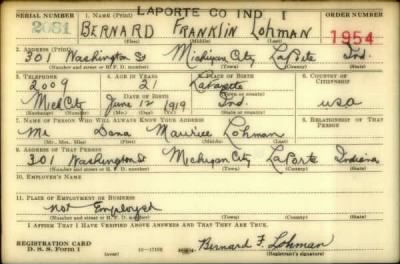 LAPORTE CO IND I
SERIAL NUMBER 1. NAME (Print) ORDER NUMBER
2081 BERNARD FRANKLIN LOHMAN 1954
(First) (Middle) (Last)
2. ADDRESS (Print)
301 Washington St Michigan City LaPorte Ind.
(Number and street or R. F. D. number) (Town) (County) (State)
3. TELEPHONE 4. AGE IN YEARS 5. PLACE OF BIRTH 6. COUNTRY OF CITIZENSHIP
2009 21 Lafayette
DATE OF BIRTH (Town or county)
Mich Cty June 12 1919 Ind. USA
(Exchange) (Number) (Mo.) (Day) (Yr.) (State or country)
7. NAME OF PERSON WHO WILL ALWAYS KNOW YOUR ADDRESS 8. RELATIONSHIP OF THAT PERSON
Mr Dana Maurice Lohman
(Mr., Mrs., Miss) (First) (Middle) (Last)
9. ADDRESS OF THAT PERSON
301 Washington St Michigan City LaPorte Indiana
(Number and street or R. F. D. number) (Town) (County) (State)
10. EMPLOYER'S NAME
11. PLACE OF EMPLOYMENT OR BUSINESS
Not Employed
(Number and street or R. F. D. number) (Town) (County) (State)
I AFFIRM THAT I HAVE VERIFIED ABOVE ANSWERS AND THAT THEY ARE TRUE.
REGISTRATION CARD
D. S. S. Form 1 Bernard F. Lohman
(Registrant's signature)